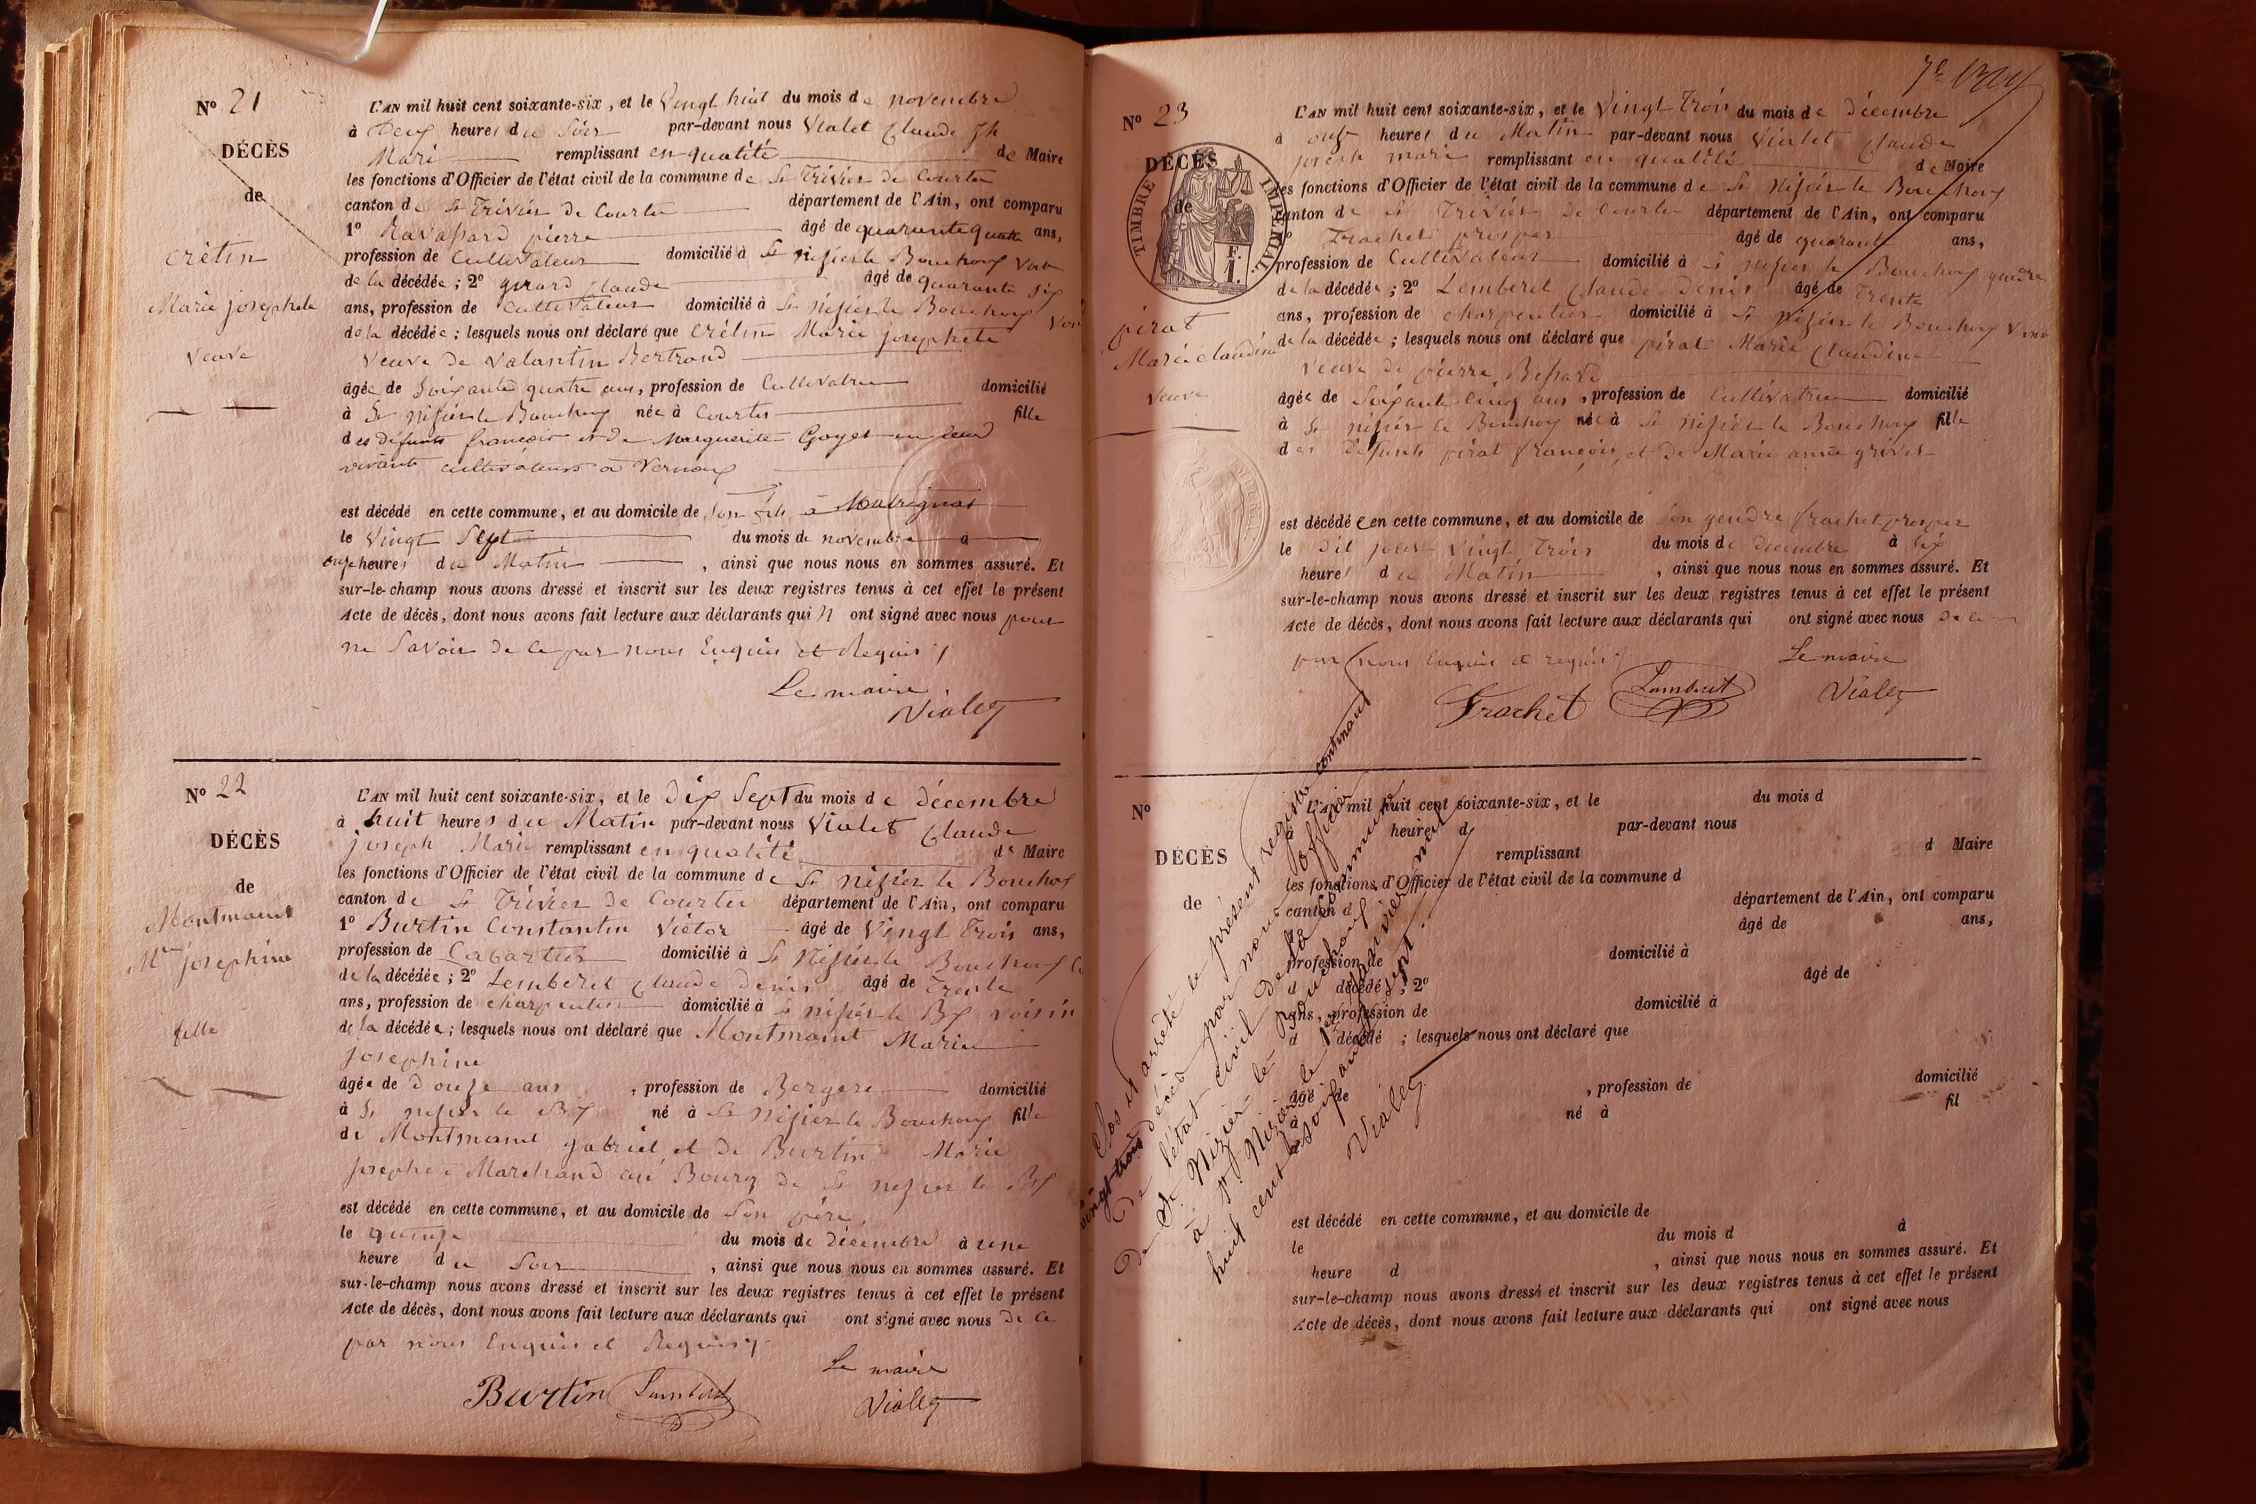 N° 21
DÉCÈS
de
crétin
Marie josephete
veuve
L'AN mil huit cent soixante-six, et le Vingt huit du mois de novembre
à Deux heures du Soir par-devant nous Vialet Claude Jh
Marie remplissant en qualité de Maire
les fonctions d'Officier de l'état civil de la commune de St Trivier de Courtes
canton de St Trivier de Courtes département de l'Ain, ont comparu
1° Ravassard pierre âgé de quarante quatre ans,
profession de Cultivateur domicilié à St nisier le Bouchoux
de la décédée ; 2° girard Claude âgé de quarante six
ans, profession de Cultivateur domicilié à St nisier le Bouchoux
de la décédée ; lesquels nous ont déclaré que Crétin Marie josephete
Veuve de Valantin Bertrand
âgée de Soixante quatre ans, profession de Cultivatrice domicilié
à St nisier le Bouchoux née à Courtes fille
des défunts françois et de Marguerite Goyet en leur
vivant cultivateurs à Vernoux
est décédé en cette commune, et au domicile de Son fils à Mavrignat
le Vingt Sept du mois de novembre à
onze heures du Matin, ainsi que nous nous en sommes assuré. Et
sur-le-champ nous avons dressé et inscrit sur les deux registres tenus à cet effet le présent
Acte de décès, dont nous avons fait lecture aux déclarants qui n ont signé avec nous pour
ne Savoir de ce par nous Enquis et Requis
Le maire
Vialet
N° 22
DÉCÈS
de
Montmaint
Mie josephine
fille
L'AN mil huit cent soixante-six, et le Dix Sept du mois de Décembre
à huit heures du Matin par-devant nous Vialet Claude
joseph Marie remplissant en qualité de Maire
les fonctions d'Officier de l'état civil de la commune de St nisier le Bouchoux
canton de St Trivier de Courtes département de l'Ain, ont comparu
1° Burtin Constantin Victor âgé de Vingt Trois ans,
profession de Cabartier domicilié à St Nisier le Bouchoux
de la décédée ; 2° Lemberet Claude Denis âgé de Trente
ans, profession de charpentier domicilié à St nisier le Bx voisin
de la décédée ; lesquels nous ont déclaré que Montmaint Marie
Josephine
âgée de Douze ans, profession de Bergere domicilié
à St nisier le Bx né à St Nisier le Bouchoux fille
de Montmaint gabriel et de Burtin Marie
Josephe Marchand au Bourg de St nisier le Bx
est décédé en cette commune, et au domicile de Son père
le quinze du mois de Décembre à une
heure du Soir, ainsi que nous nous en sommes assuré. Et
sur-le-champ nous avons dressé et inscrit sur les deux registres tenus à cet effet le présent
Acte de décès, dont nous avons fait lecture aux déclarants qui ont signé avec nous De ce
par nous Enquis et Requis
Le maire
Burtin Lambert Vialet
7e
N° 23
DÉCÈS
de
TIMBRE IMPERIAL
F. 1.
pirat
Marie Claudine
veuve
L'AN mil huit cent soixante-six, et le Vingt Trois du mois de Décembre
à onze heures du Matin par-devant nous Vialet Claude
joseph marie remplissant en qualité de Maire
les fonctions d'Officier de l'état civil de la commune de St Nisier le Bouchoux
canton de St Trivier de Courtes département de l'Ain, ont comparu
1° Frachet prosper âgé de quarante ans,
profession de Cultivateur domicilié à St nisier le Bouchoux gendre
de la décédée ; 2° Lemberet Claude Denis âgé de Trente
ans, profession de charpentier domicilié à St nisier le Bouchoux
de la décédée ; lesquels nous ont déclaré que pirat Marie Claudine
Veuve de pierre Bessard
âgée de Soixante Cinq ans, profession de Cultivatrice domicilié
à St nisier le Bouchoux né à St nisier le Bouchoux fille
des Défunts pirat françois et de Marie anne grivet
est décédée en cette commune, et au domicile de Son gendre frachet prosper
le Dit jour Vingt Trois du mois de Décembre à Six
heures du Matin, ainsi que nous nous en sommes assuré. Et
sur-le-champ nous avons dressé et inscrit sur les deux registres tenus à cet effet le présent
Acte de décès, dont nous avons fait lecture aux déclarants qui ont signé avec nous De ce
par nous Enquis et requis
Le maire
Frachet Lambert Vialet
N°
DÉCÈS
de
L'AN mil huit cent soixante-six, et le du mois d
à heure d par-devant nous
remplissant d Maire
les fonctions d'Officier de l'état civil de la commune d
canton d département de l'Ain, ont comparu
1° âgé de ans,
profession de domicilié à
d décédé ; 2° âgé de
ans, profession de domicilié à
d décédé ; lesquels nous ont déclaré que
âgé de , profession de domicilié
à né à fil
est décédé en cette commune, et au domicile de
le du mois d à
heure d , ainsi que nous nous en sommes assuré. Et
sur-le-champ nous avons dressé et inscrit sur les deux registres tenus à cet effet le présent
Acte de décès, dont nous avons fait lecture aux déclarants qui ont signé avec nous
Clos et arrêté le présent registre contenant
vingt-trois décès par nous officier
De l'état civil De la commune
De St Nizier-le-Bouchoux
à St Nizier le 1er janvier mil
huit cent soixante sept.
Vialet